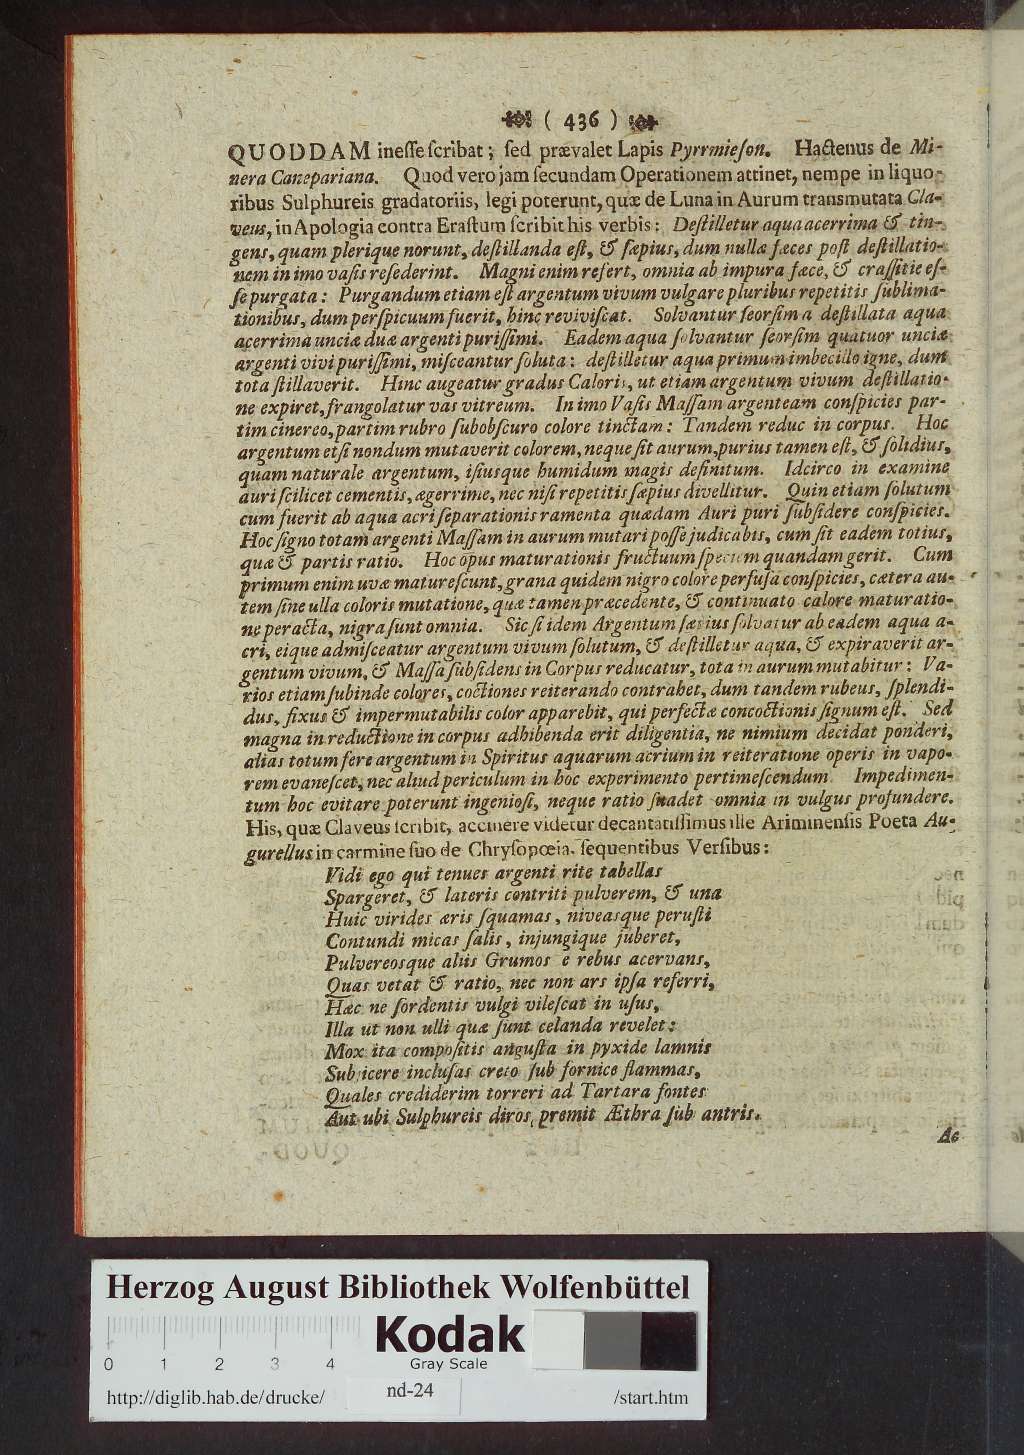 ( 436 )
QUODDAM ineſſe ſcribat; ſed prævalet Lapis Pyrrmieſon. Hactenus de Mi-
nera Canepariana. Quod vero jam ſecundam Operationem attinet, nempe in liquo-
ribus Sulphureis gradatoriis, legi poterunt, quæ de Luna in Aurum transmutata Cla-
veus, in Apologia contra Eraſtum ſcribit his verbis: Deſtilletur aqua acerrima & tin-
gens, quam plerique norunt, deſtillanda eſt, & ſæpius, dum nullæ fæces poſt deſtillatio-
nem in imo vaſis reſederint. Magni enim refert, omnia ab impura fæce, & craſſitie eſ-
ſe purgata: Purgandum etiam eſt argentum vivum vulgare pluribus repetitis ſublima-
tionibus, dum perſpicuum fuerit, hinc reviviſcat. Solvantur ſeorſim a deſtillata aqua
acerrima unciæ duæ argenti puriſſimi. Eadem aqua ſolvantur ſeorſim quatuor unciæ
argenti vivi puriſſimi, miſceantur ſoluta: deſtilletur aqua primum imbecillo igne, dum
tota ſtillaverit. Hinc augeatur gradus Caloris, ut etiam argentum vivum deſtillatio-
ne expiret, frangolatur vas vitreum. In imo Vaſis Maſſam argenteam conſpicies par-
tim cinereo, partim rubro ſubobſcuro colore tinctam: Tandem reduc in corpus. Hoc
argentum etſi nondum mutaverit colorem, neque ſit aurum, purius tamen eſt, & ſolidius,
quam naturale argentum, iſiusque humidum magis definitum. Idcirco in examine
auri ſcilicet cementis, ægerrime, nec niſi repetitis ſæpius divellitur. Quin etiam ſolutum
cum fuerit ab aqua acri ſeparationis ramenta quædam Auri puri ſubſidere conſpicies.
Hoc ſigno totam argenti Maſſam in aurum mutari poſſe judicabis, cum ſit eadem totius,
quæ & partis ratio. Hoc opus maturationis fructuum ſpeciem quandam gerit. Cum
primum enim uvæ matureſcunt, grana quidem nigro colore perfuſa conſpicies, cætera au-
tem ſine ulla coloris mutatione, quæ tamen præcedente, & continuato calore maturatio-
ne peracta, nigra ſunt omnia. Sic ſi idem Argentum ſæpius ſolvatur ab eadem aqua a-
cri, eique admiſceatur argentum vivum ſolutum, & deſtilletur aqua, & expiraverit ar-
gentum vivum, & Maſſa ſubſidens in Corpus reducatur, tota in aurum mutabitur: Va-
rios etiam ſubinde colores, coctiones reiterando contrahet, dum tandem rubeus, ſplendi-
dus, fixus & impermutabilis color apparebit, qui perfectæ concoctionis ſignum eſt. Sed
magna in reductione in corpus adhibenda erit diligentia, ne nimium decidat ponderi,
alias totum fere argentum in Spiritus aquarum acrium in reiteratione operis in vapo-
rem evaneſcet, nec aliud periculum in hoc experimento pertimeſcendum Impedimen-
tum hoc evitare poterunt ingenioſi, neque ratio ſuadet omnia in vulgus profundere.
His, quæ Claveus ſcribit, accinere videtur decantatiſſimus ille Ariminenſis Poeta Au-
gurellus in carmine ſuo de Chryſopœia, ſequentibus Verſibus:
Vidi ego qui tenues argenti rite tabellas
Spargeret, & lateris contriti pulverem, & una
Huic virides æris ſquamas, niveasque peruſti
Contundi micas ſalis, injungique juberet,
Pulvereosque aliis Grumos e rebus acervans,
Quas vetat & ratio, nec non ars ipſa referri,
Hæc ne ſordentis vulgi vileſcat in uſus,
Illa ut non ulli quæ ſunt celanda revelet:
Mox ita compoſitis anguſta in pyxide lamnis
Subjicere incluſas creto ſub fornice flammas,
Quales crediderim torreri ad Tartara fontes
Aut ubi Sulphureis diros premit Æthra ſub antris.
Ac
Herzog August Bibliothek Wolfenbüttel
Kodak
Gray Scale
0 1 2 3 4
nd-24
http://diglib.hab.de/drucke/ /start.htm